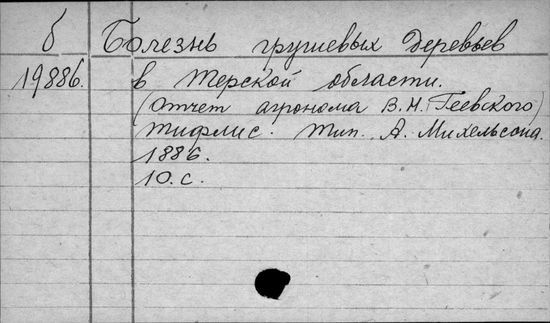 б Болезнь грушевых деревьев
19886. в Терской области.
(Отчет агронома В.Н. Геевского)
Тифлис. Тип. А. Михельсона.
1886.
10.с.